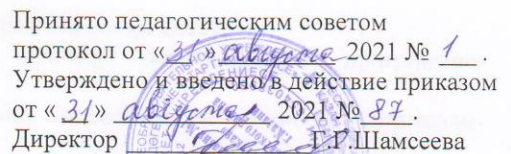 Принято педагогическим советом
протокол от «31» августа 2021 № 1.
Утверждено и введено в действие приказом
от «31» августа 2021 № 87.
Директор Г.Р.Шамсеева